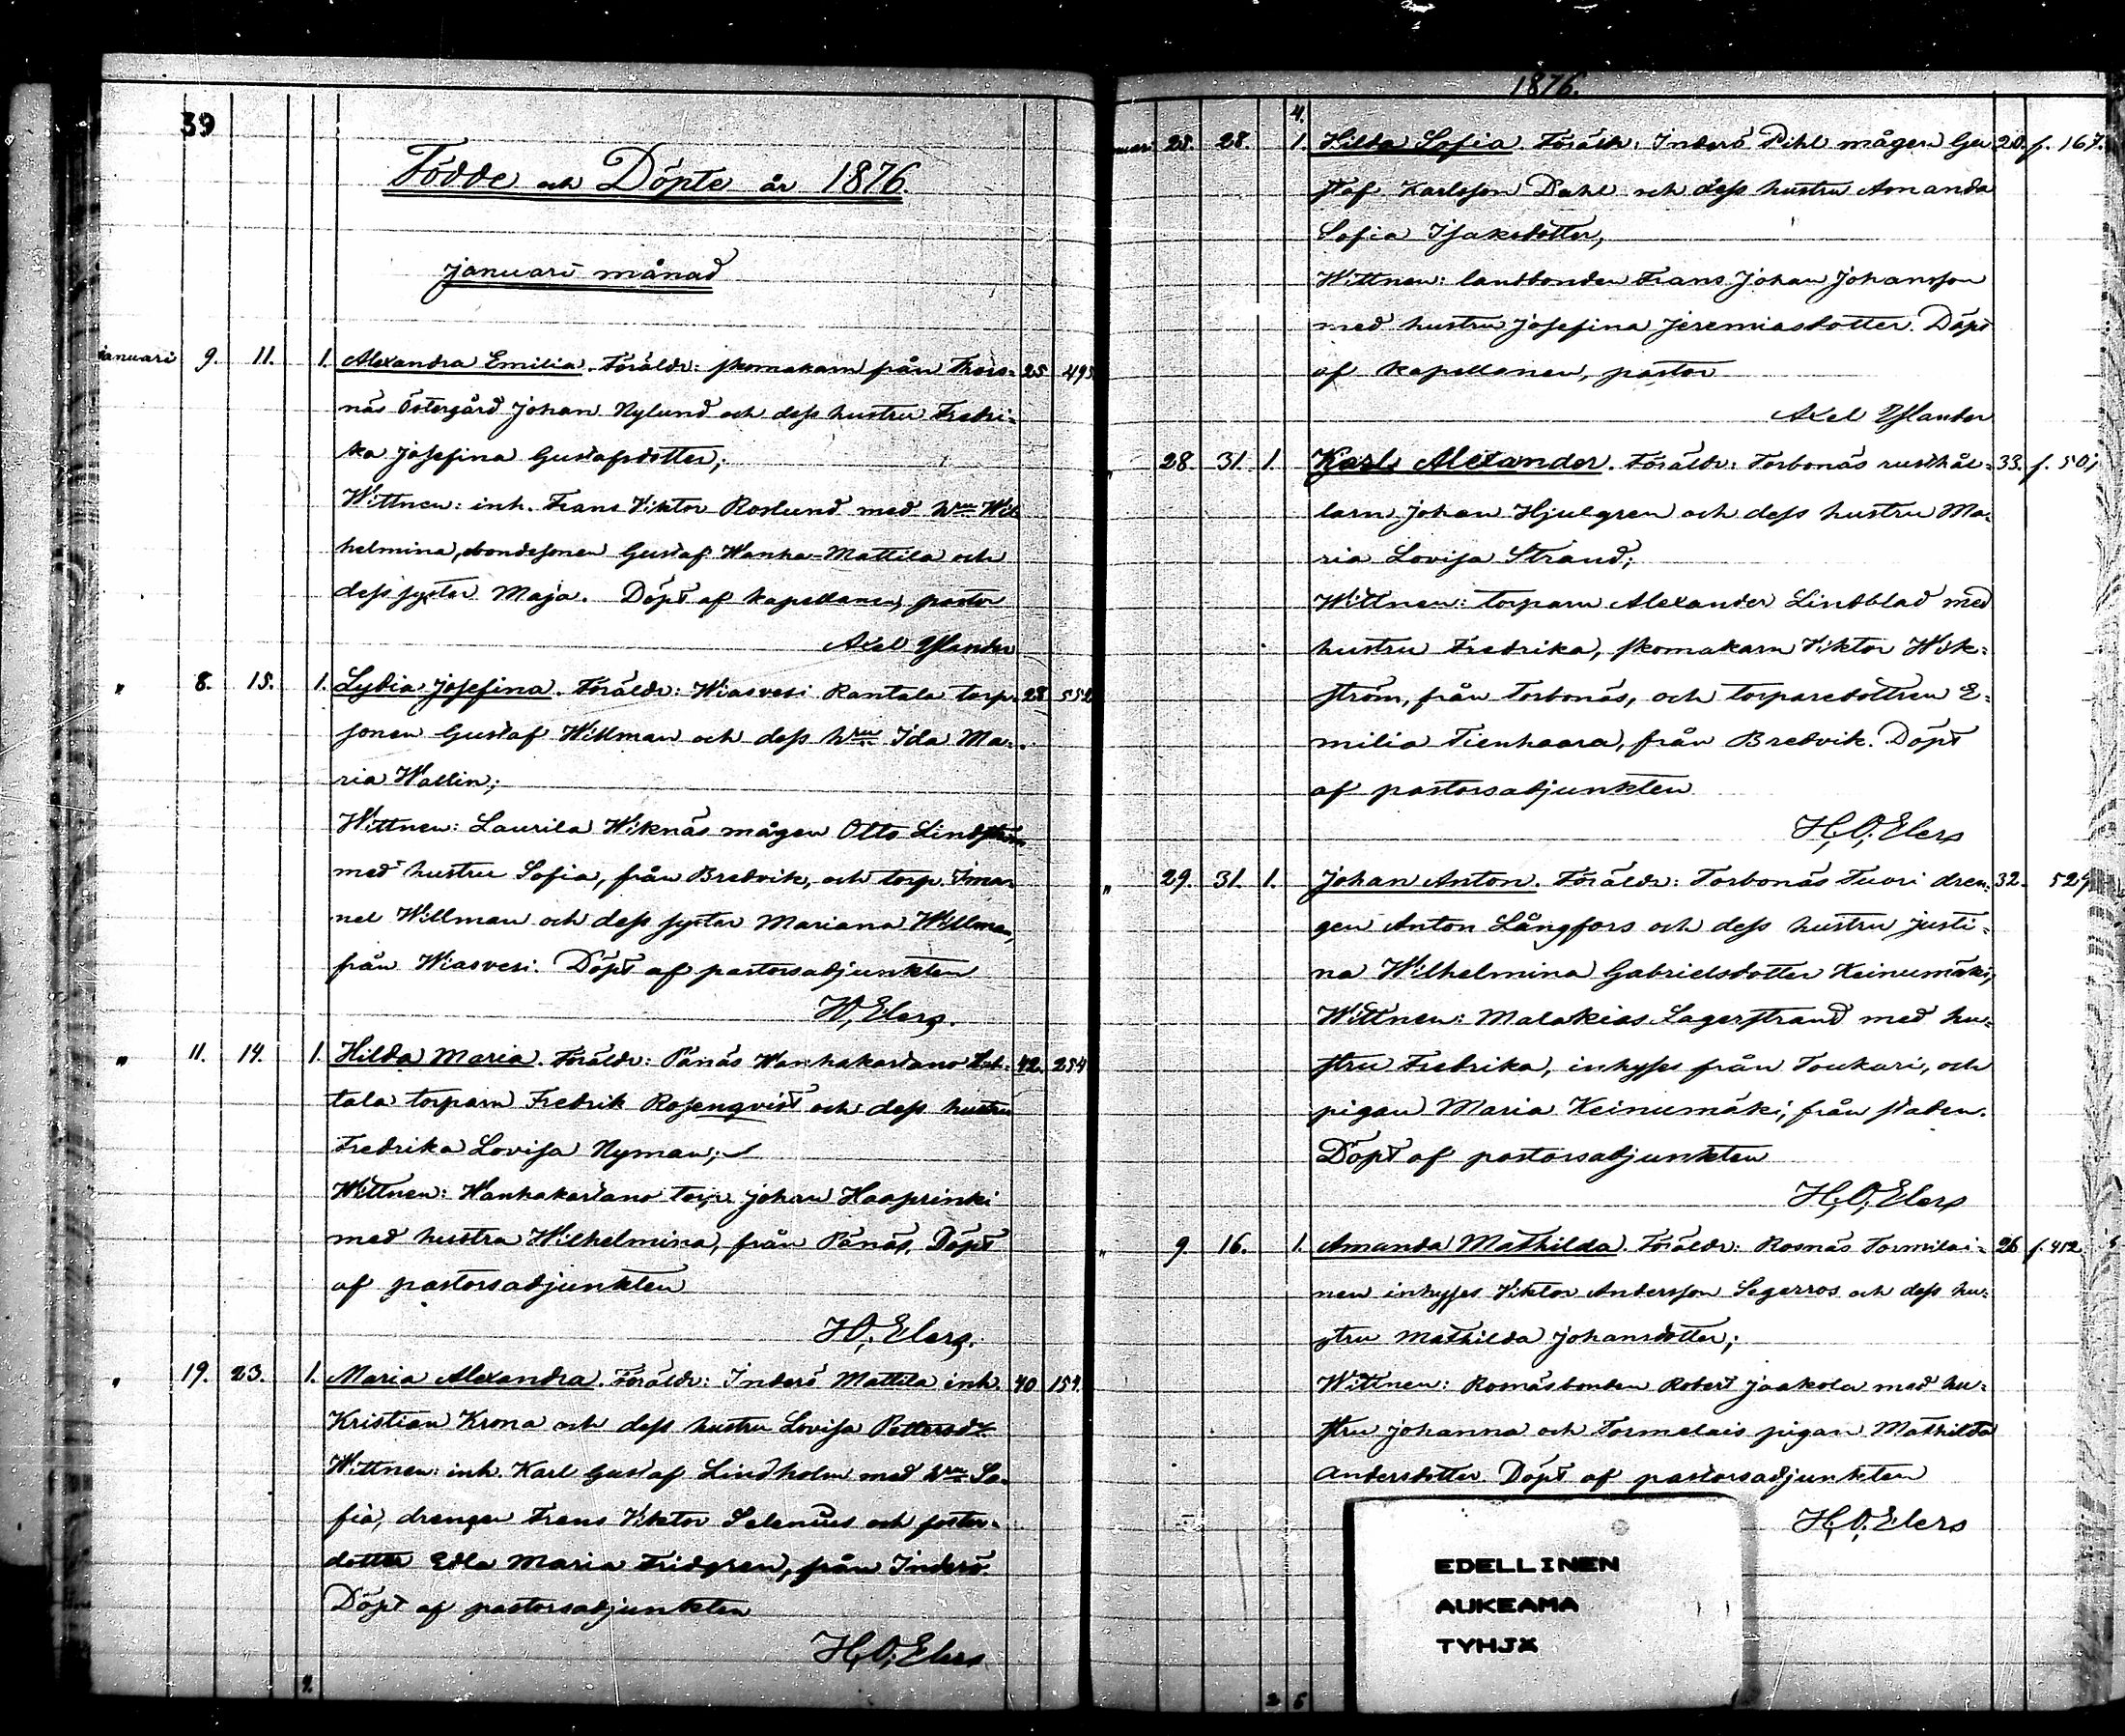 39
Födde och Döpte år 1876.
januari månad
januari 9. 11. 1. Alexandra Emilia. Föräldr: skomakarn från Thors- 25 495
näs Östergård Johan Nylund och dess hustru Fredri-
ka Josefina Gustafsdotter;
Wittnen: inh. Frans Viktor Roslund med hru Wil
helmina, bondesonen Gustaf Wanha-Mattila och
dess syster Maja. Döpt af kapellanen, pastor
Axel
" 8. 15. 1. Lydia Josefina. Föräldr: Wiasvesi Rantala torp- 28 552
sonen Gustaf Willman och dess hru Ida Ma-
ria Wallin;
Wittnen: Laurila Wiknäs mågen Otto Lindström
med hustru Sofia, från Bredvik, och torp. Ima-
nel Willman och dess syster Mariana Willman,
från Wiasvesi. Döpt af pastorsadjunkten
H.O. Elers.
" 11. 14. 1. Hilda Maria. Föräldr: Pänäs Wanhakartano 42. 254
tala torparn Fredrik Rosenqvist och dess hustru
Fredrika Lovisa Nyman;
Wittnen: Wanhakartano torp. Johan Haaprinki
med hustru Wilhelmina, från Pänäs. Döpt
af pastorsadjunkten
H.O. Elers.
" 19. 23. 1. Maria Alexandra. Föräldr: Inderö Mattila inh. 40 154.
Kristian Krona och dess hustru Lovisa Pettersdr
Wittnen: inh. Karl Gustaf Lindholm med hru So-
fia, drengen Frans Viktor Selenius och foster-
dotter Edla Maria Fridgren, från Inderö.
Döpt af pastorsadjunkten
H.O. Elers
1876.
4.
28. 28. 1. Hilda Sofia. Föräldr: Inderö Pihl mågen Gu 20. f. 167.
staf Karlsson Dahl och dess hustru Amanda
Sofia Isaksdotter,
Wittnen: landbonden Frans Johan Johansson
med hustru Josefina Jeremiasdotter. Döpt
af kapellanen, pastor
Axel
" 28. 31. 1. Karl Alexander. Föräldr: Torbonäs rusthål- 33. f. 501
larn Johan Hjulgren och dess hustru Ma-
ria Lovisa Strand;
Wittnen: torparn Alexander Lindblad med
hustru Fredrika, skomakarn Viktor Wik-
ström, från Torbonäs, och torparedottren E-
milia Tienhaara, från Bredvik. Döpt
af pastorsadjunkten
H.O. Elers
" 29. 31. 1. Johan Anton. Föräldr: Torbonäs Tuori dren- 32. 529
gen Anton Långfors och dess hustru Justi-
na Wilhelmina Gabrielsdotter Keinumäki,
Wittnen: Malakias Lagerstrand med hu-
stru Fredrika, inhyses från Toukari, och
pigan Maria Keinumäki, från staden.
Döpt af pastorsadjunkten
H.O. Elers
" 9. 16. 1. Amanda Mathilda. Föräldr: Rosnäs Tormilai- 26 f. 412.
nen inhyses Viktor Andersson Segerros och dess hu-
stru Mathilda Johansdotter;
Wittnen: Rosnäsbonden Robert Jaakola med hu-
stru Johanna och Tormelais pigan Mathilda
Andersdotter. Döpt af pastorsadjunkten
H.O. Elers
EDELLINEN
AUKEAMA
TYHJÄ